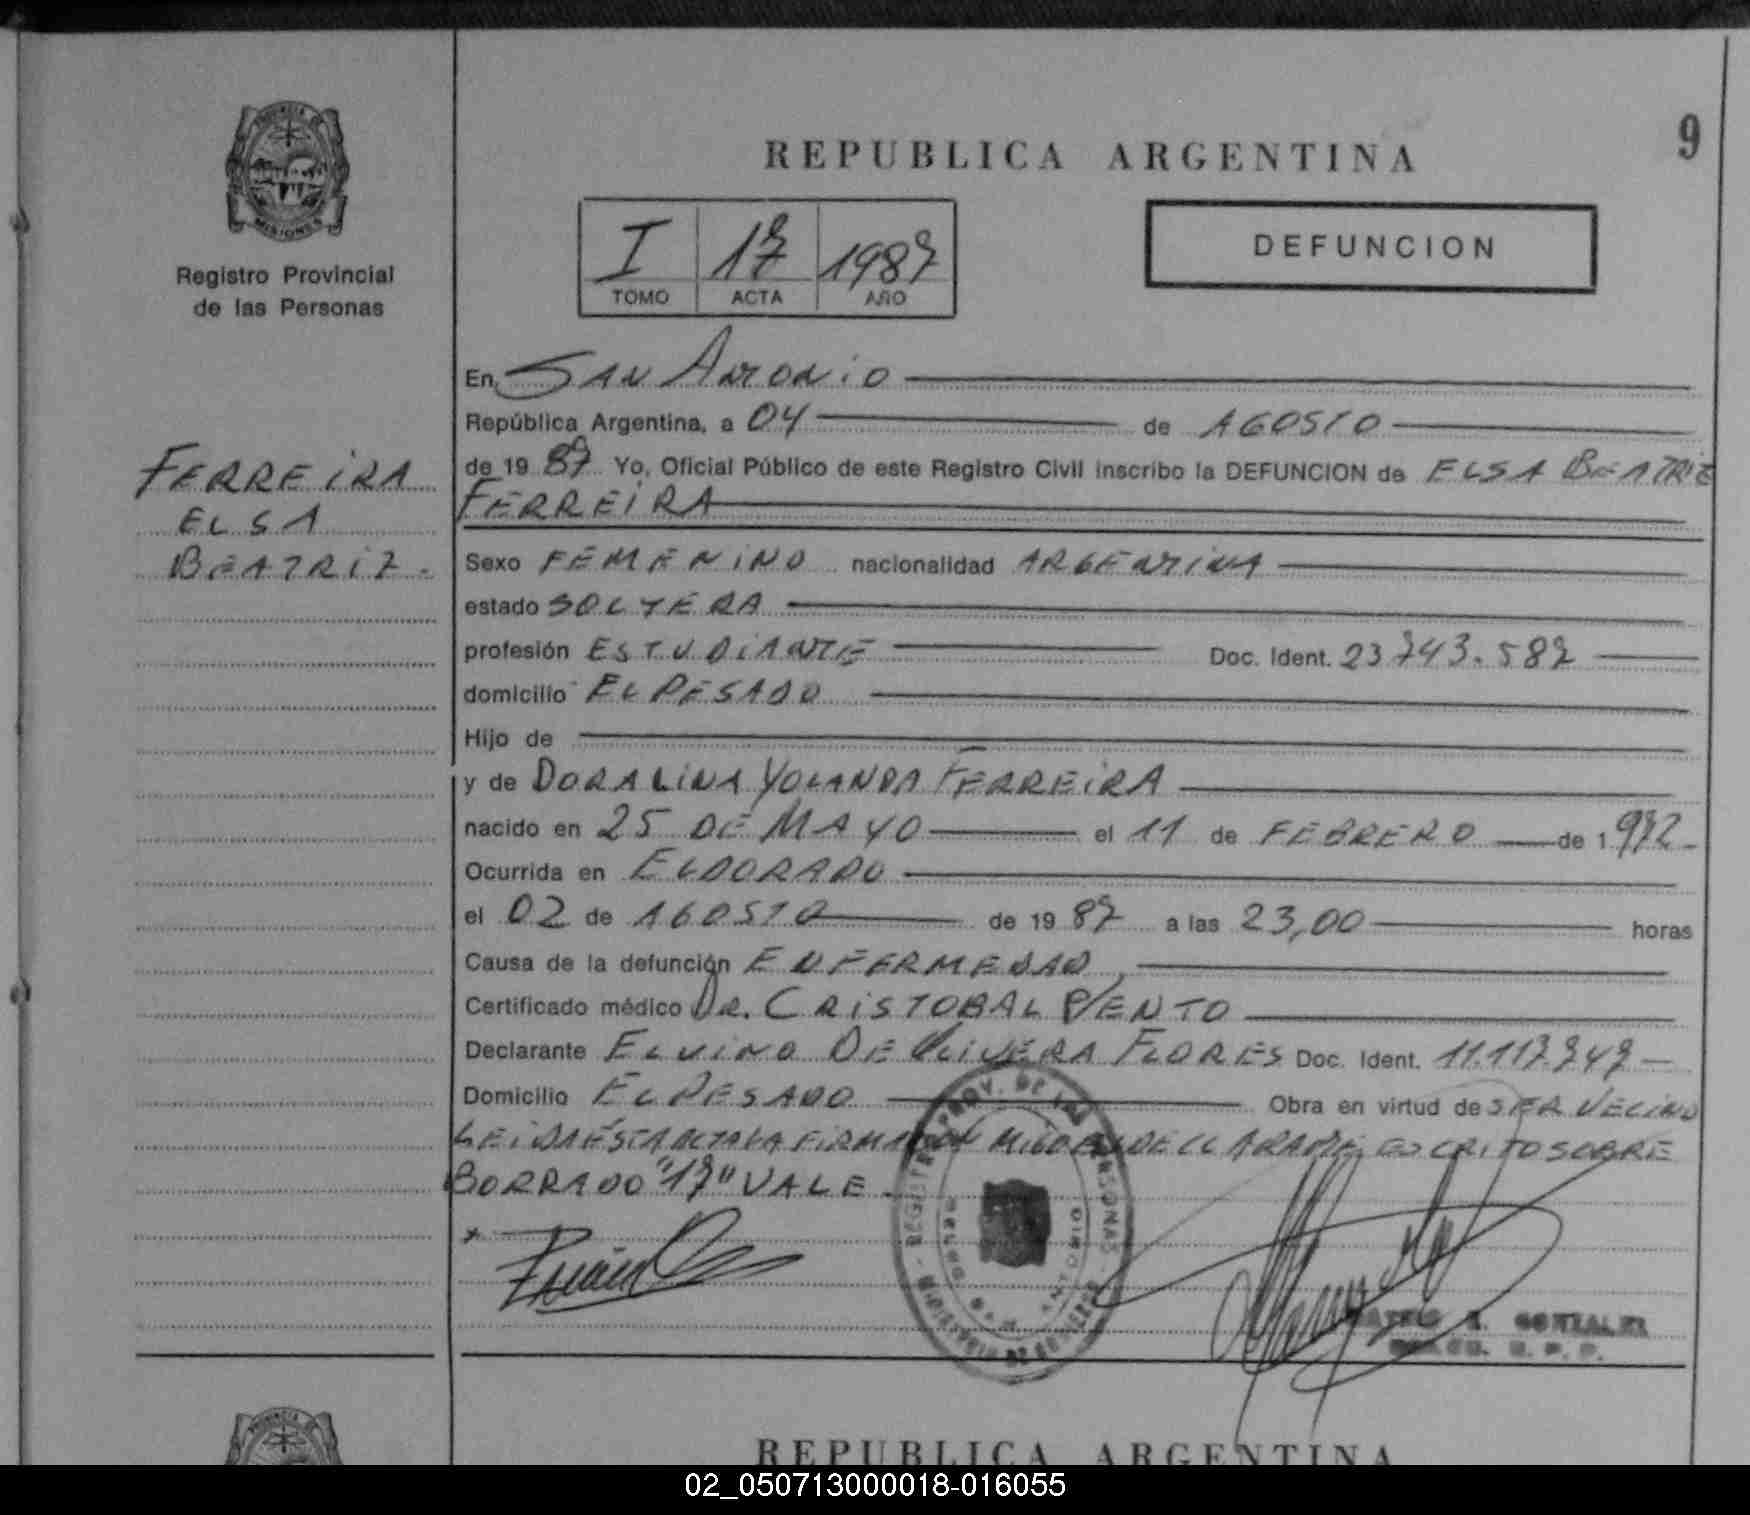 PROVINCIA DE
MISIONES
Registro Provincial
de las Personas
FERREIRA
ELSA
BEATRIZ.
REPUBLICA ARGENTINA
9
I 17 1987
TOMO ACTA AÑO
DEFUNCION
En SAN ANTONIO
República Argentina, a 04 de AGOSTO
de 19 87 Yo, Oficial Público de este Registro Civil inscribo la DEFUNCION de ELSA BEATRIZ
FERREIRA
Sexo FEMENINO nacionalidad ARGENTINA
estado SOLTERA
profesión ESTUDIANTE Doc. Ident. 23743.587
domicilio EL PESADO
Hijo de
y de DORALINA YOLANDA FERREIRA
nacido en 25 DE MAYO el 11 de FEBRERO de 1972
Ocurrida en ELDORADO
el 02 de AGOSTO de 19 87 a las 23,00 horas
Causa de la defunción ENFERMEDAD,
Certificado médico DR. CRISTOBAL VENTO
Declarante ELVINO DE OLIVERA FLORES Doc. Ident. 11.117.747
Domicilio EL PESADO Obra en virtud de SER VECINO
LEIDA ESTA ACTA LA FIRMA CON MIGO EL DECLARANTE. ESCRITO SOBRE
BORRADO "17" VALE.
GONZALEZ
REPUBLICA ARGENTINA
02_050713000018-016055